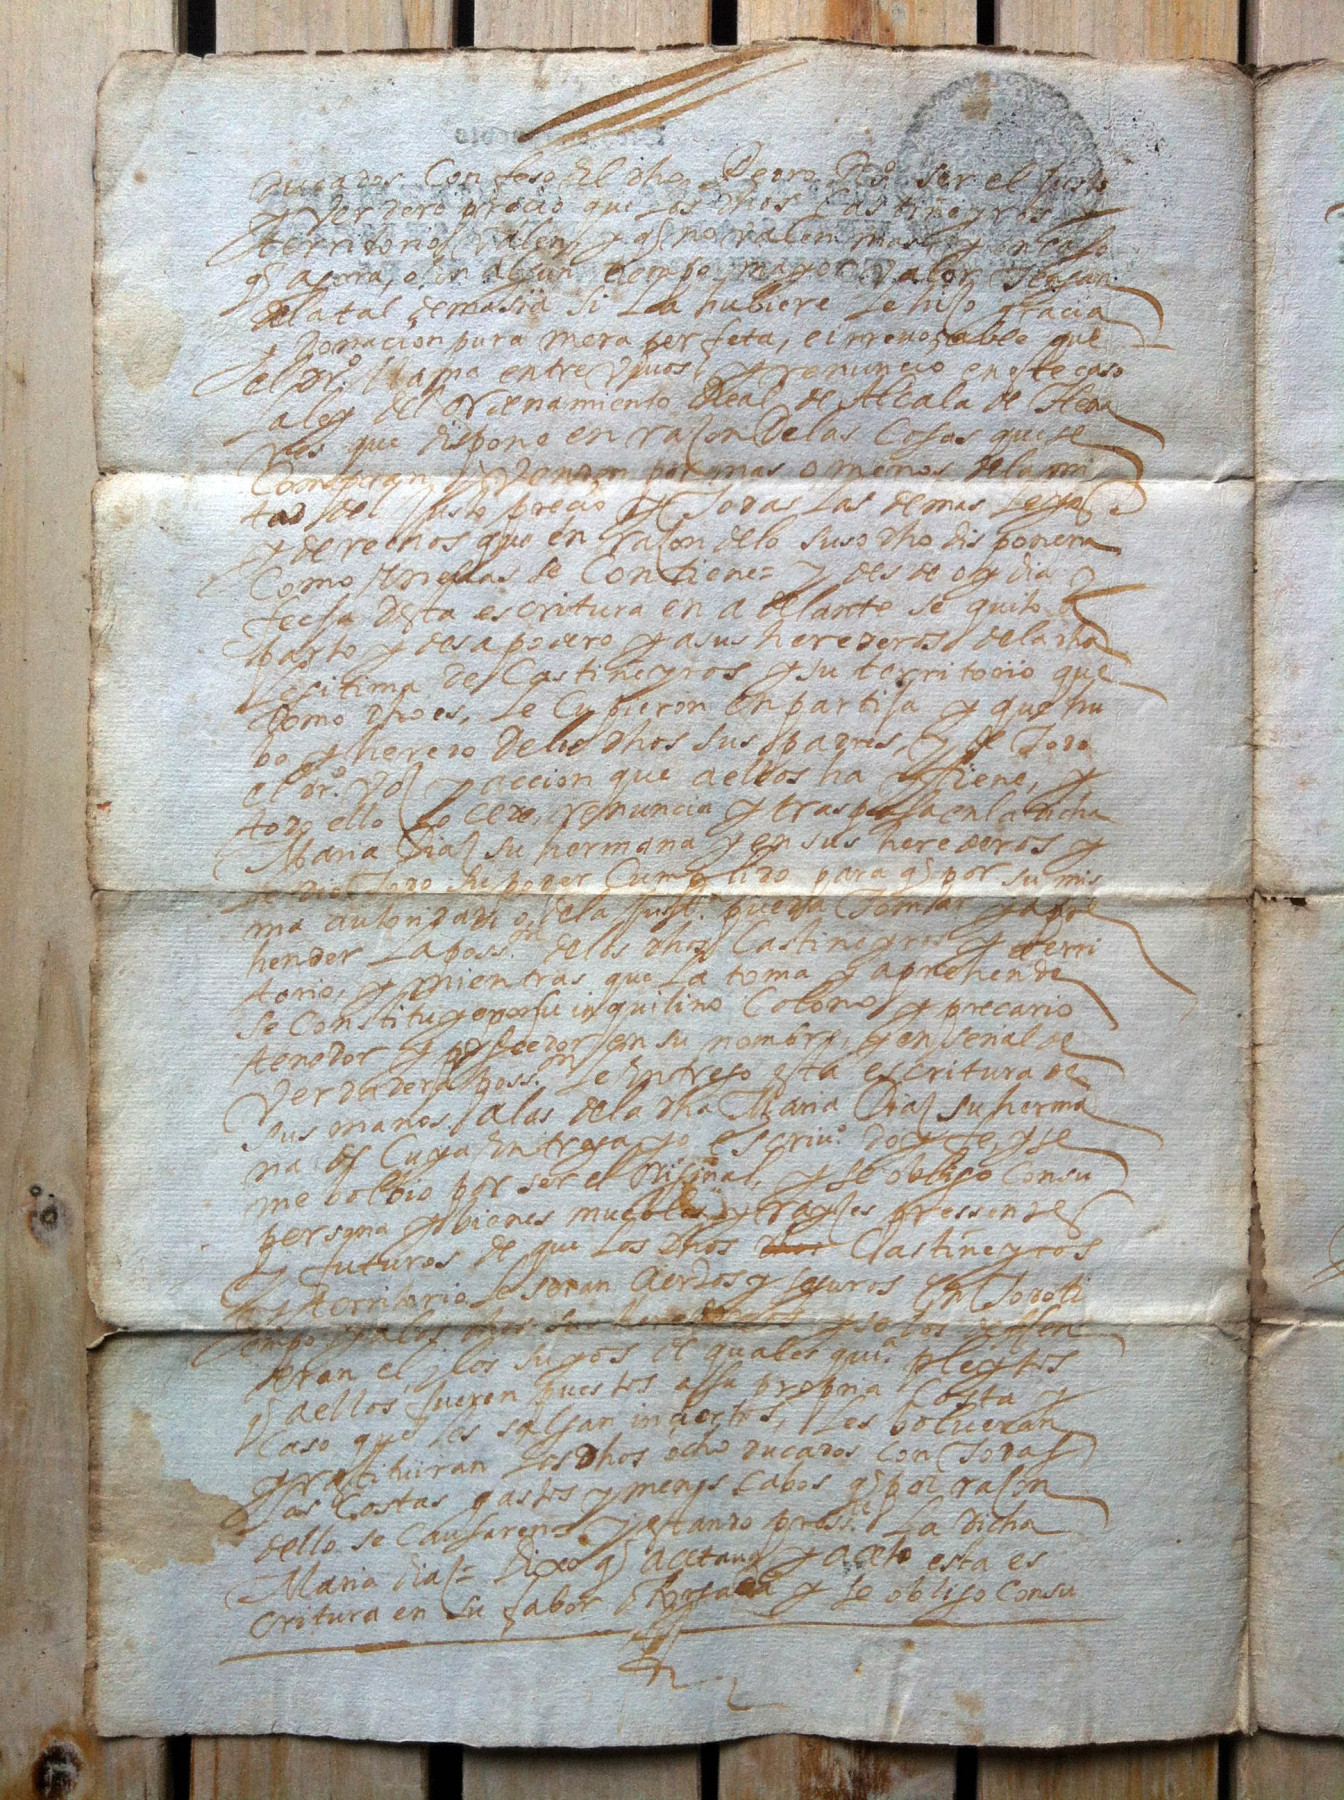 ducados Confeso el dho Pedro Ro. ser el Justo
y Verdero precio que los dhos Castineyros y
territorio Valen y q no valen mas y en caso
q aora, o en algun tiempo mayor Valor tengan
de la tal demasia si la hubiere le hiso gracia
y Donacion pura mera perfeta, e irrevocable que
el dro. llama entre Vivos y renuncio en este caso
la ley del Ordenamiento Real de Alcala de Hena
res que dispone en rason de las Cosas que se
Compran y Venden por mas o menos de la mi
tad del Justo precio y Todas las demas leyes
y derechos que en rason de lo suso dho disponen
Como en ellas se Contiene= y desde oy dia
fecha desta escritura en adelante se quito a
parto y desapodero y a sus herederos de la dha
lesitima de Castineyros y su territorio que
Como dho es, le Cupieron en partisa y que hu
bo y heredo de los dhos sus padres, y de Todo
el dro. Vos y accion que a ellos ha y tiene, y
todo ello lo cede, renuncia y traspasa en la dicha
Maria Dias su hermana y en sus herederos y
le dio Todo su poder Cumplido para q por su mis
ma autoridad o de la Just.a pueda Tomar y apre
hender la poss.on de los dhos Castineyros y Terri
torio, y mientras que la toma y aprehende
se Constituye por su inquilino Colono y precario
tenedor y poseedor en su nombre, y en señal de
Verdadera poss.on le Entrego esta escritura de
sus manos a las de la dha Maria Dias su herma
na de Cuya Entrega yo escriuo. doy fe, y se
me bolbio por ser el Orisinal, y se obligo Con su
persona y bienes muebles y rayses pressentes
y futuros de que los Dhos Castineyros
y territorio le seran Ciertos y seguros en Todo ti
empo y a los dhos sus herederos y se los deffen
deran el y los suyos de quales qui.a pleytos
q a ellos fueren puestos a su propria Costa y
Caso que les salgan inciertos, les bolueran
y restituiran los dhos ocho ducados Con Todas
las Costas gastos y menos cabos q por rason
dello se Causaren= y estando press.te la dicha
Maria dias= Dixo q acetaua y aceto esta es
critura en su fabor Otorgada y se obligo Con su